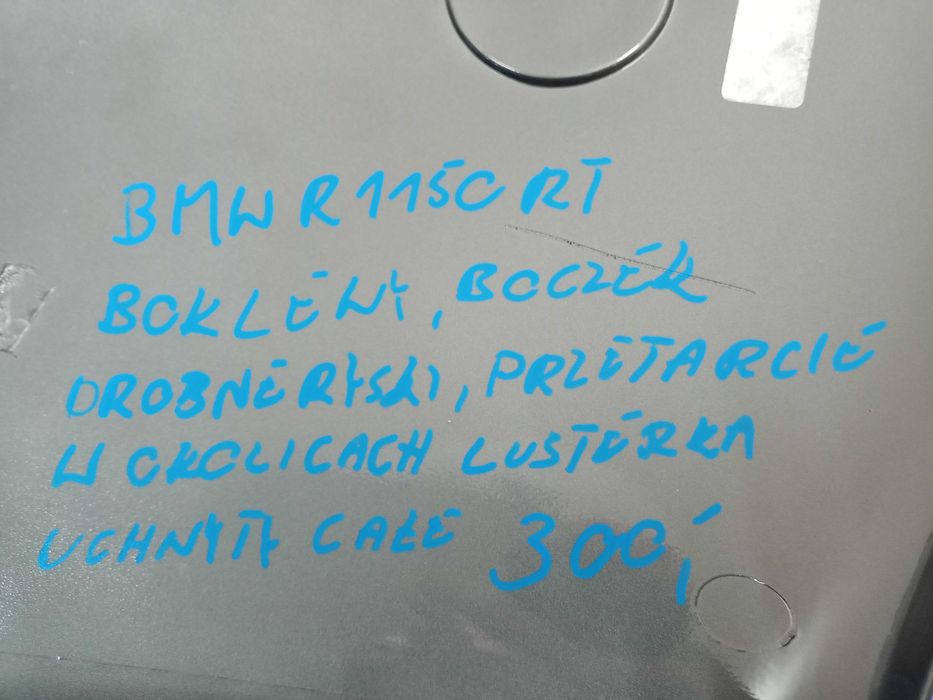 BMW R1150 RT
BOK LEWY, BOCZEK
DROBNE RYSKI, PRZETARCIE
W OKOLICACH LUSTERKA
UCHWYTY CAŁE 300,-